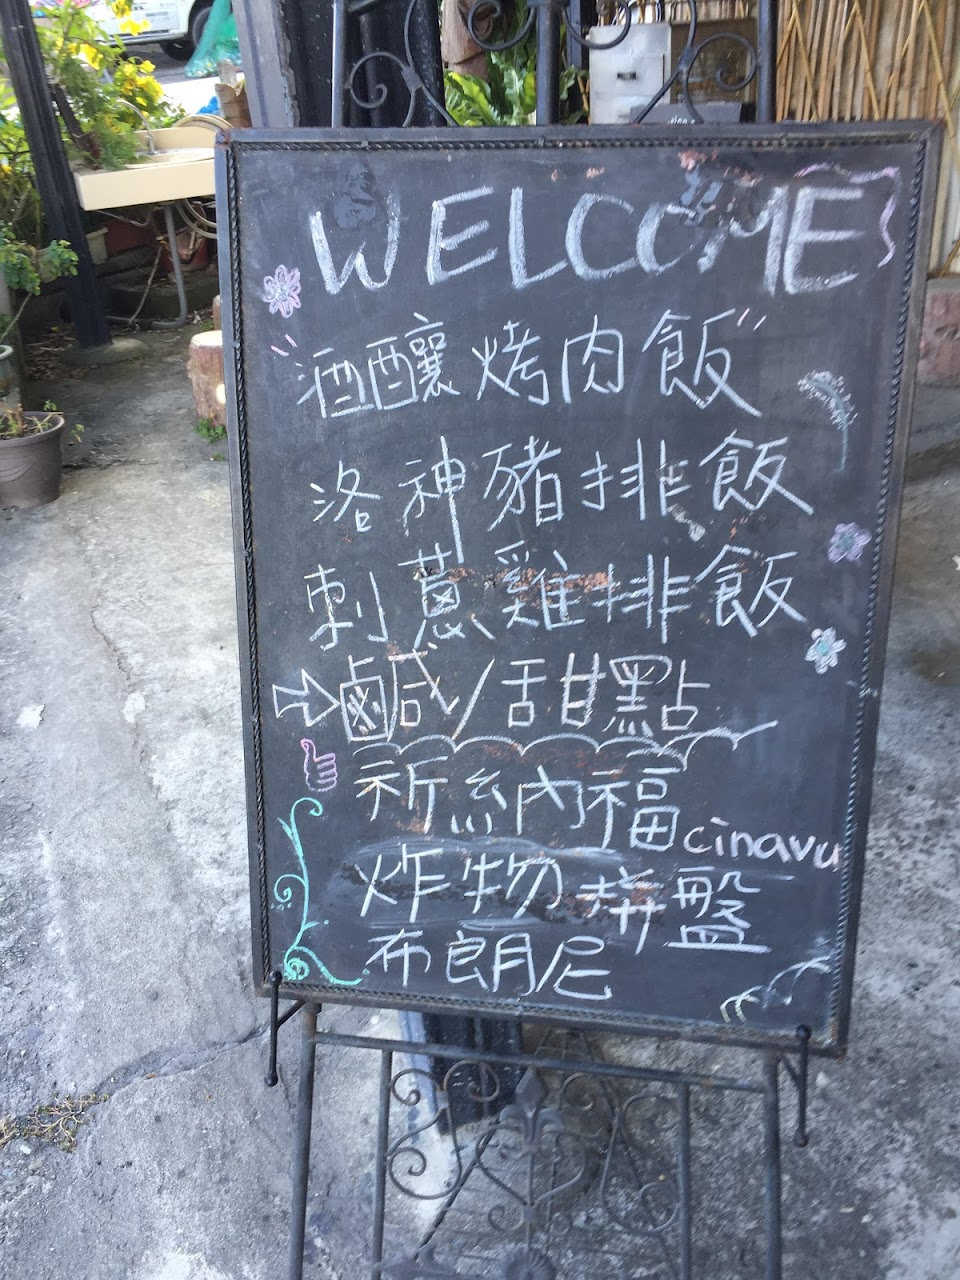 WELCOME
"酒釀烤肉飯"
洛神豬排飯
刺蔥雞排飯
鹹/甜點
祈納福cinavu
炸物拼盤
布朗尼